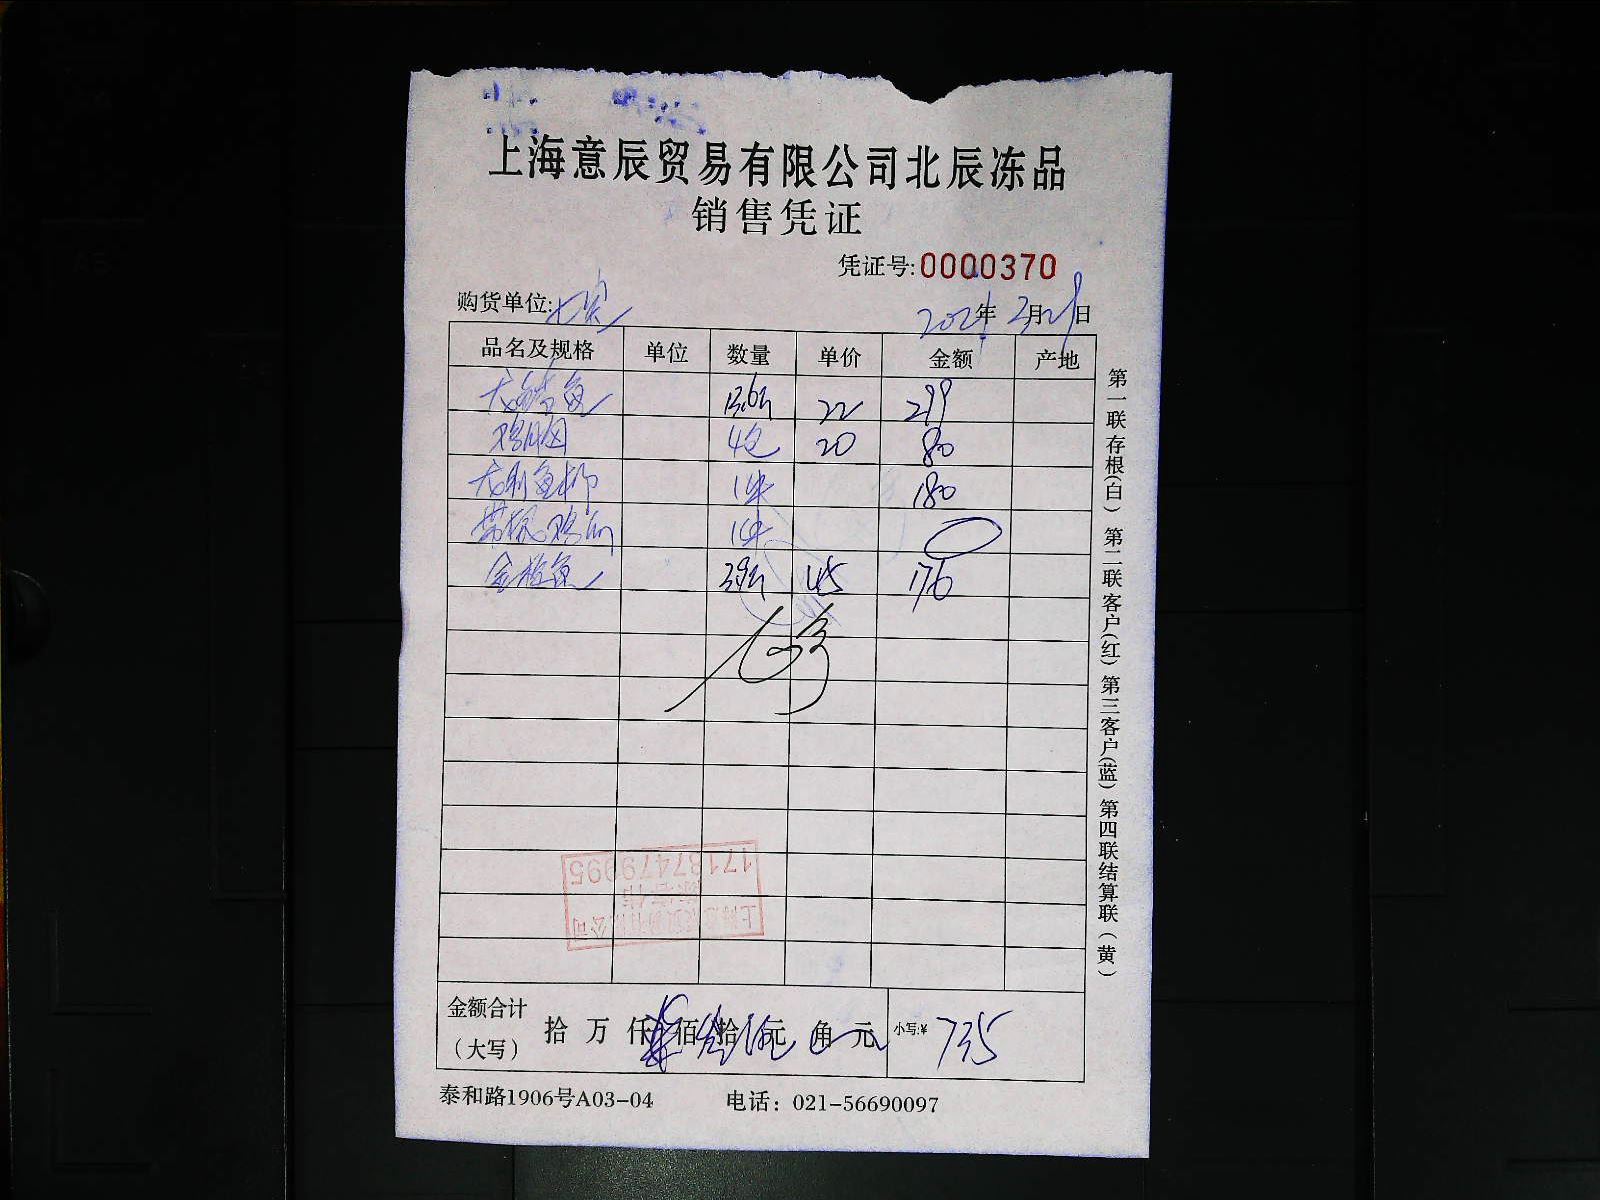 上海意辰贸易有限公司北辰冻品
销售凭证
凭证号:0000370
购货单位:
202 年 2月2 日
品名及规格 单位 数量 单价 金额 产地
鱼 13.6斤 22 299
4包 20 80
龙利鱼柳 1件 180
1件
金鲳鱼 3.9斤 45 176
17187479995
上海意辰贸易有限公司
金额合计
(大写)
拾 万 仟 柒 佰 叁 拾 伍 元 角 元 小写:¥ 735
泰和路1906号A03-04 电话: 021-56690097
第一联存根(白) 第二联客户(红) 第三客户(蓝) 第四联结算联(黄)